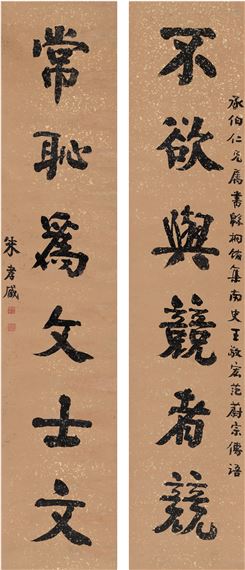 不欲與競者競
承伯仁兄屬書 集南史王敬宏范蔚宗傳語
常恥為文士文
朱孝臧